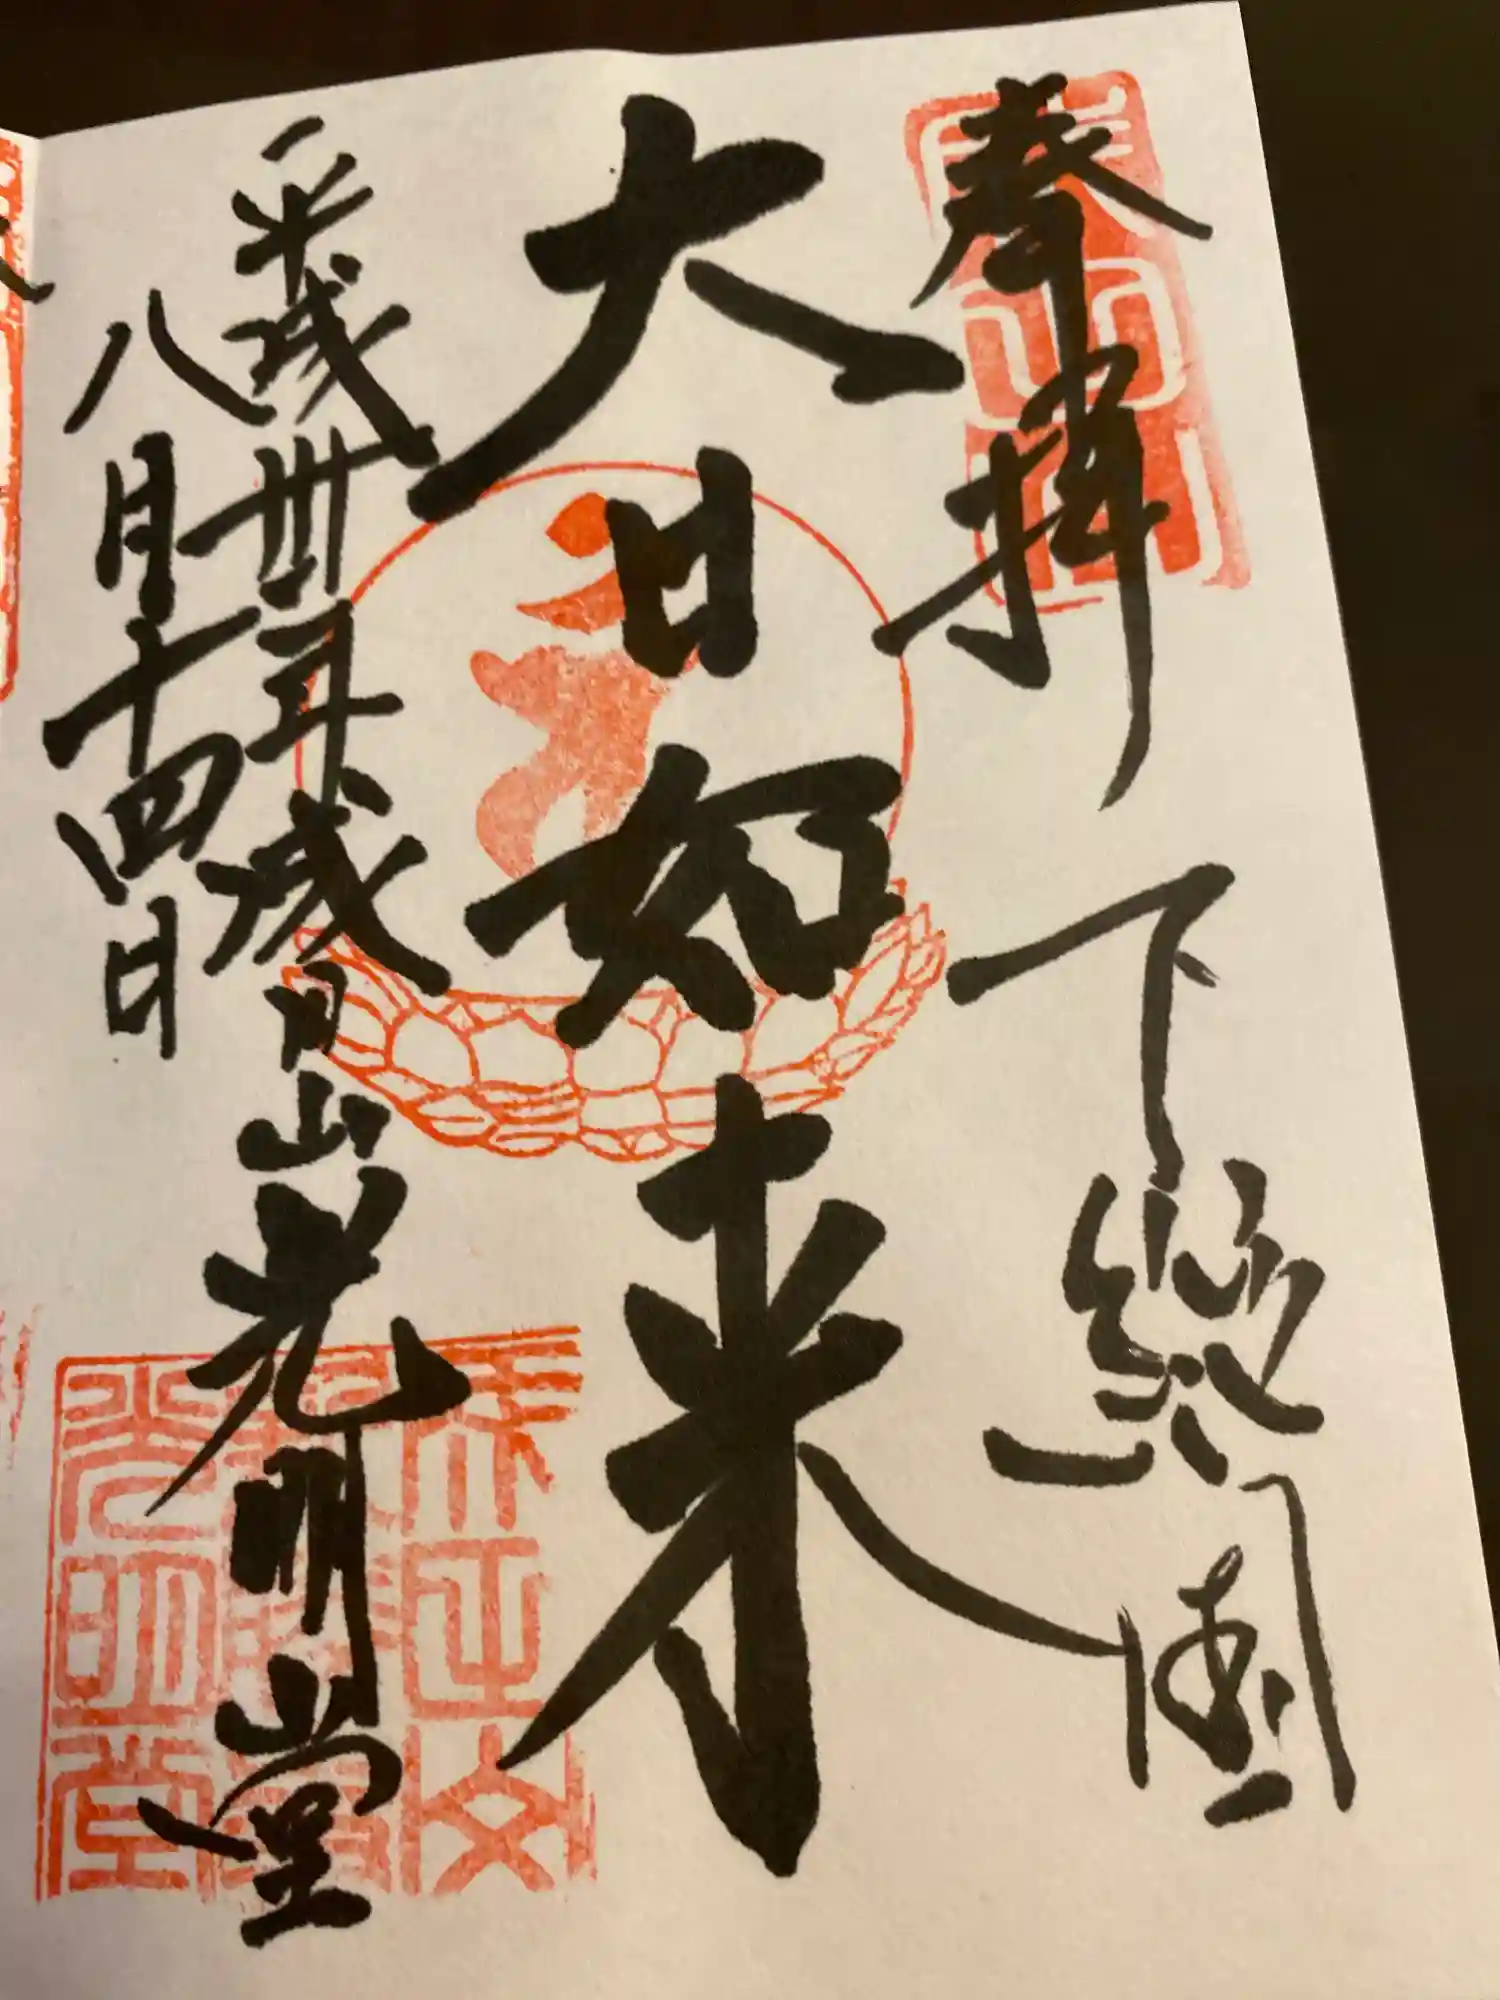 奉拝 下総國
大日如来
平成卅年 成田山 光明堂
八月十四日
光明堂